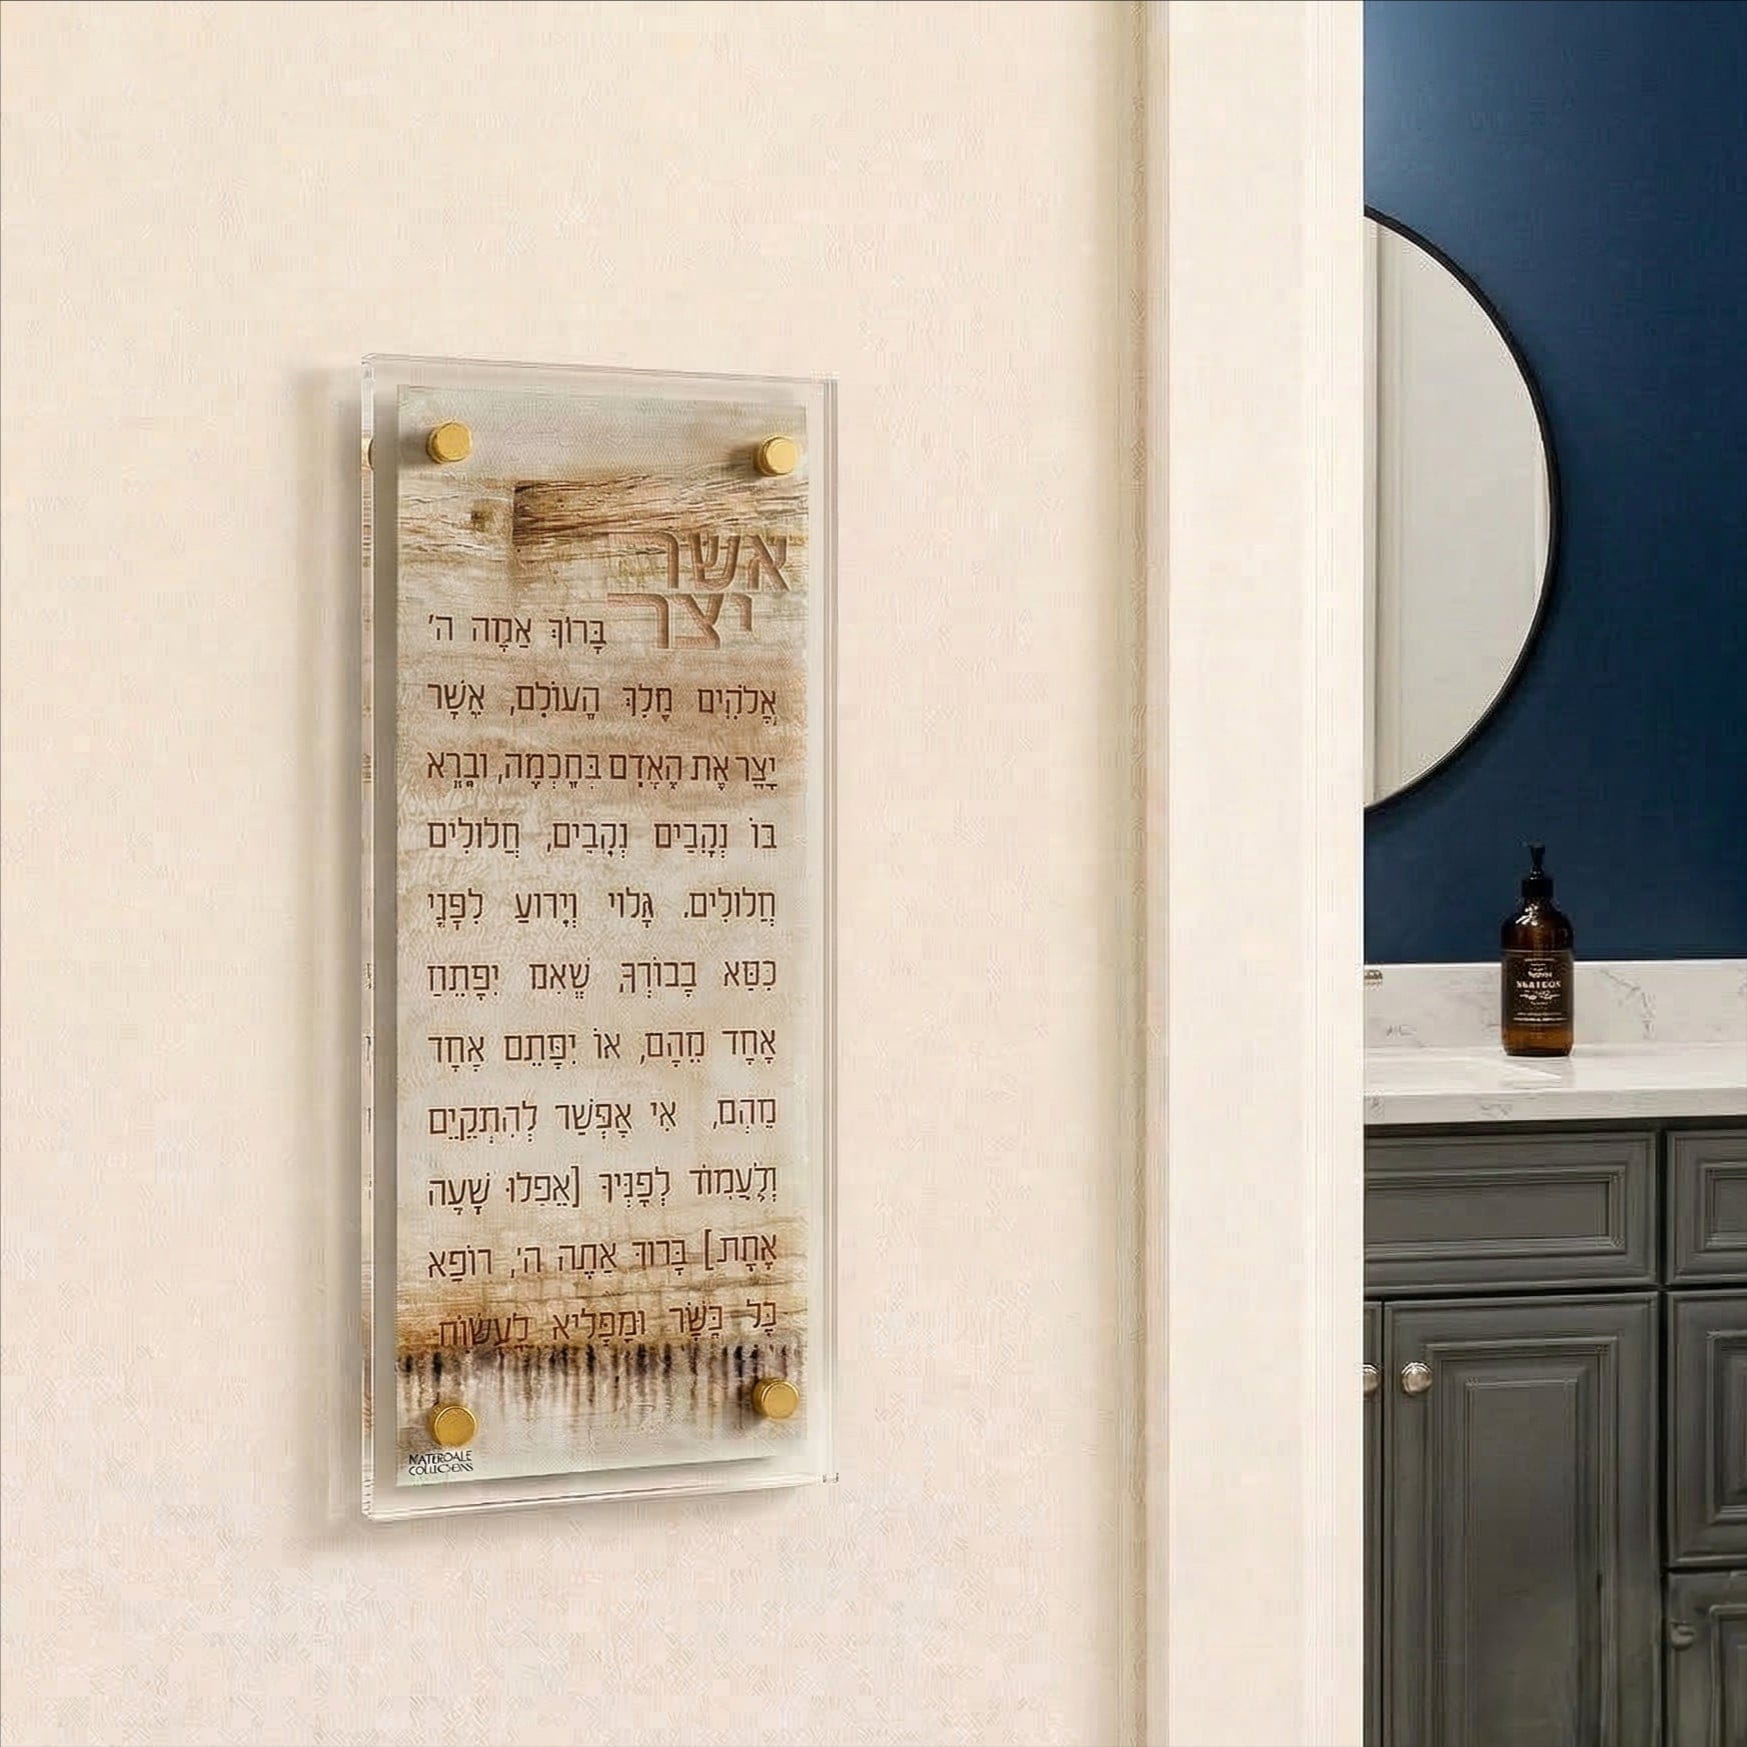 אשר
יצר
בָּרוּךְ אַמָּה ה'
אֱלֹהִים מֶלֶךְ הָעוֹלָם, אֲשֶׁר
יָצַר אֶת הָאָדָם בְּחָכְמָה, וּבָרָא
בוֹ נְקָבִים נְקָבִים, חֲלוּלִים
חֲלוּלִים. גָּלוּי וְיָרוּעַ לִפְנֵי
כִסֵּא כְבוֹרְךָ, שֶׁאִם יִפָּתֵחַ
אֶחָד מֵהֶם, אוֹ יִפָּתֵם אֶחָד
מֵהֶם, אִי אֶפְשַׁר לְהִתְקַיֵּם
וְלַעֲמוֹד לְפָנֶיךָ [אֲפִלּוּ שָׁעָה
אֶחָת] בָּרוּךְ אַתָּה ה', רוֹפֵא
כָל בָּשָׂר וּמַפְלִיא לַעֲשׂוֹת.
WATERDALE
COLLECTIONS